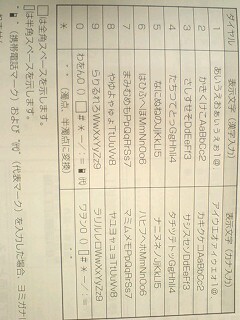 ダイヤル 表示文字(漢字入力) 表示文字(カナ入力)
1 あいうえおぁぃぅぇぉ1@ アイウエオァィゥェォ1@
2 かきくけこAaBbCc2 カキクケコAaBbCc2
3 さしすせそDdEeFf3 サシスセソDdEeFf3
4 たちつてとっGgHhIi4 タチツテトッGgHhIi4
5 なにぬねのJjKkLl5 ナニヌネノJjKkLl5
6 はひふへほMmNnOo6 ハヒフヘホMmNnOo6
7 まみむめもPpQqRrSs7 マミムメモPpQqRrSs7
8 やゆよゃゅょTtUuVv8 ヤユヨャュョTtUuVv8
9 らりるれろWwXxYyZz9 ラリルレロWwXxYyZz9
0 わをん0 ワヲン0
* ゛゜(濁点、半濁点に変換)
□は全角スペースを示します。
は半角スペースを示します。
(携帯電話マーク)および (代表マーク)を入力した場合、ヨミガナ